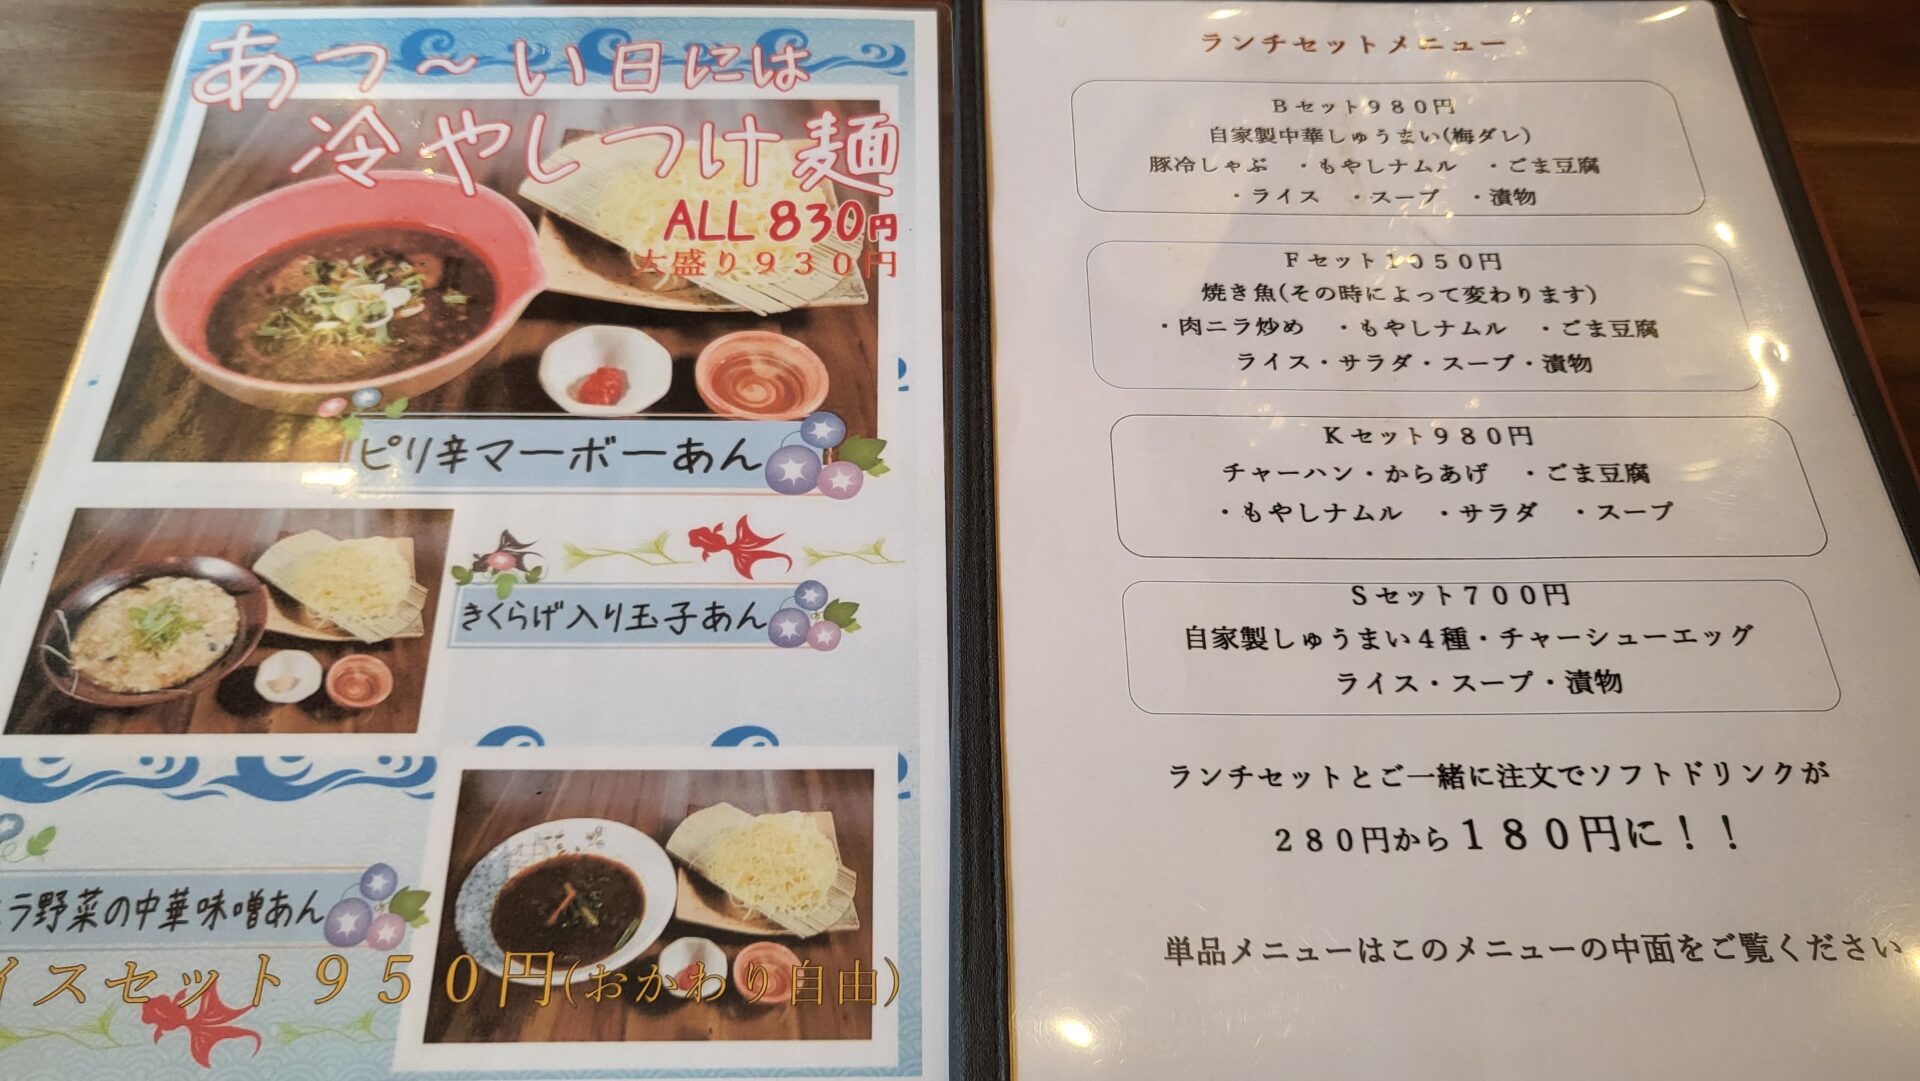 あつ～い日には
冷やしつけ麺
ALL 830円
大盛り９３０円
ピリ辛マーボーあん
きくらげ入り玉子あん
ラ野菜の中華味噌あん
イスセット９５０円(おかわり自由)
ランチセットメニュー
Ｂセット９８０円
自家製中華しゅうまい(梅ダレ)
豚冷しゃぶ　・もやしナムル　・ごま豆腐
・ライス　・スープ　・漬物
Ｆセット１０５０円
焼き魚(その時によって変わります)
・肉ニラ炒め　・もやしナムル　・ごま豆腐
ライス・サラダ・スープ・漬物
Ｋセット９８０円
チャーハン・からあげ　・ごま豆腐
・もやしナムル　・サラダ　・スープ
Ｓセット７００円
自家製しゅうまい４種・チャーシューエッグ
ライス・スープ・漬物
ランチセットとご一緒に注文でソフトドリンクが
２８０円から１８０円に！！
単品メニューはこのメニューの中面をご覧ください